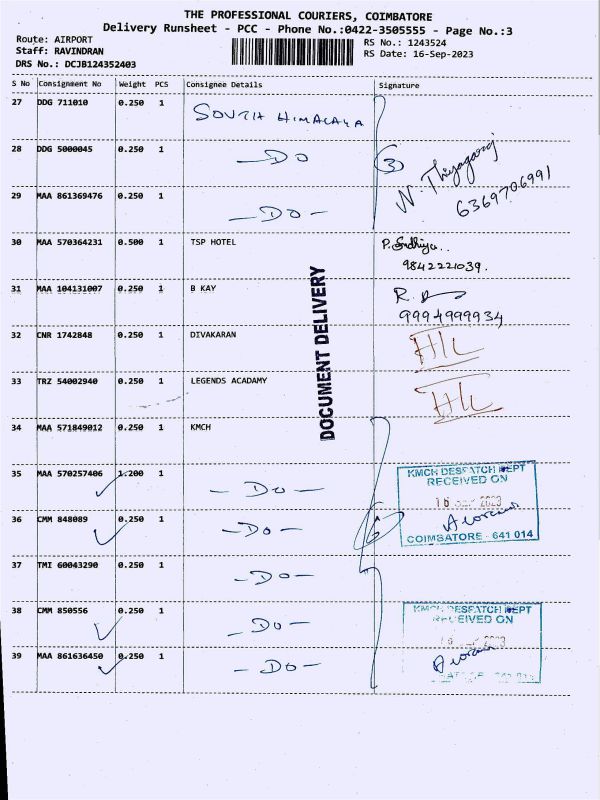 THE PROFESSIONAL COURIERS, COIMBATORE
Delivery Runsheet - PCC - Phone No.:0422-3505555 - Page No.:3
Route: AIRPORT
Staff: RAVINDRAN
DRS No.: DCJB124352403
RS No.: 1243524
RS Date: 16-Sep-2023
S No Consignment No Weight PCS Consignee Details Signature
27 DDG 711010 0.250 1 SOUTH HIMALAYA
28 DDG 5000045 0.250 1 —DO 3
N. Thiyagaraj
6369706991
29 MAA 861369476 0.250 1 —DO—
30 MAA 570364231 0.500 1 TSP HOTEL P. Sndhiya..
9842221039.
31 MAA 104131007 0.250 1 B KAY R.
9994999934
32 CNR 1742848 0.250 1 DIVAKARAN H/L
33 TRZ 54002940 0.250 1 LEGENDS ACADAMY H/L
DOCUMENT DELIVERY
34 MAA 571849012 0.250 1 KMCH
35 MAA 570257406 1.200 1 —DO—
KMCH DESPATCH DEPT
RECEIVED ON
16 SEP 2023
COIMBATORE - 641 014
36 CMM 848089 0.250 1 —DO— 6
37 TMI 60043290 0.250 1 —DO—
38 CMM 850556 0.250 1 —DO—
KMCH DESPATCH DEPT
RECEIVED ON
16 SEP 2023
39 MAA 861636450 0.250 1 —DO—